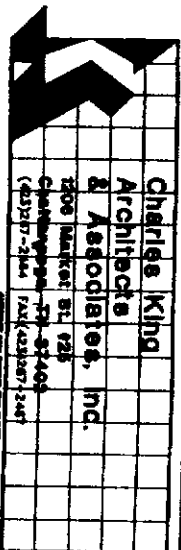 Charles King
Architects
& Associates, Inc.
1206 Market St. #25
Chattanooga, TN 37402
FAX(423)267-2467